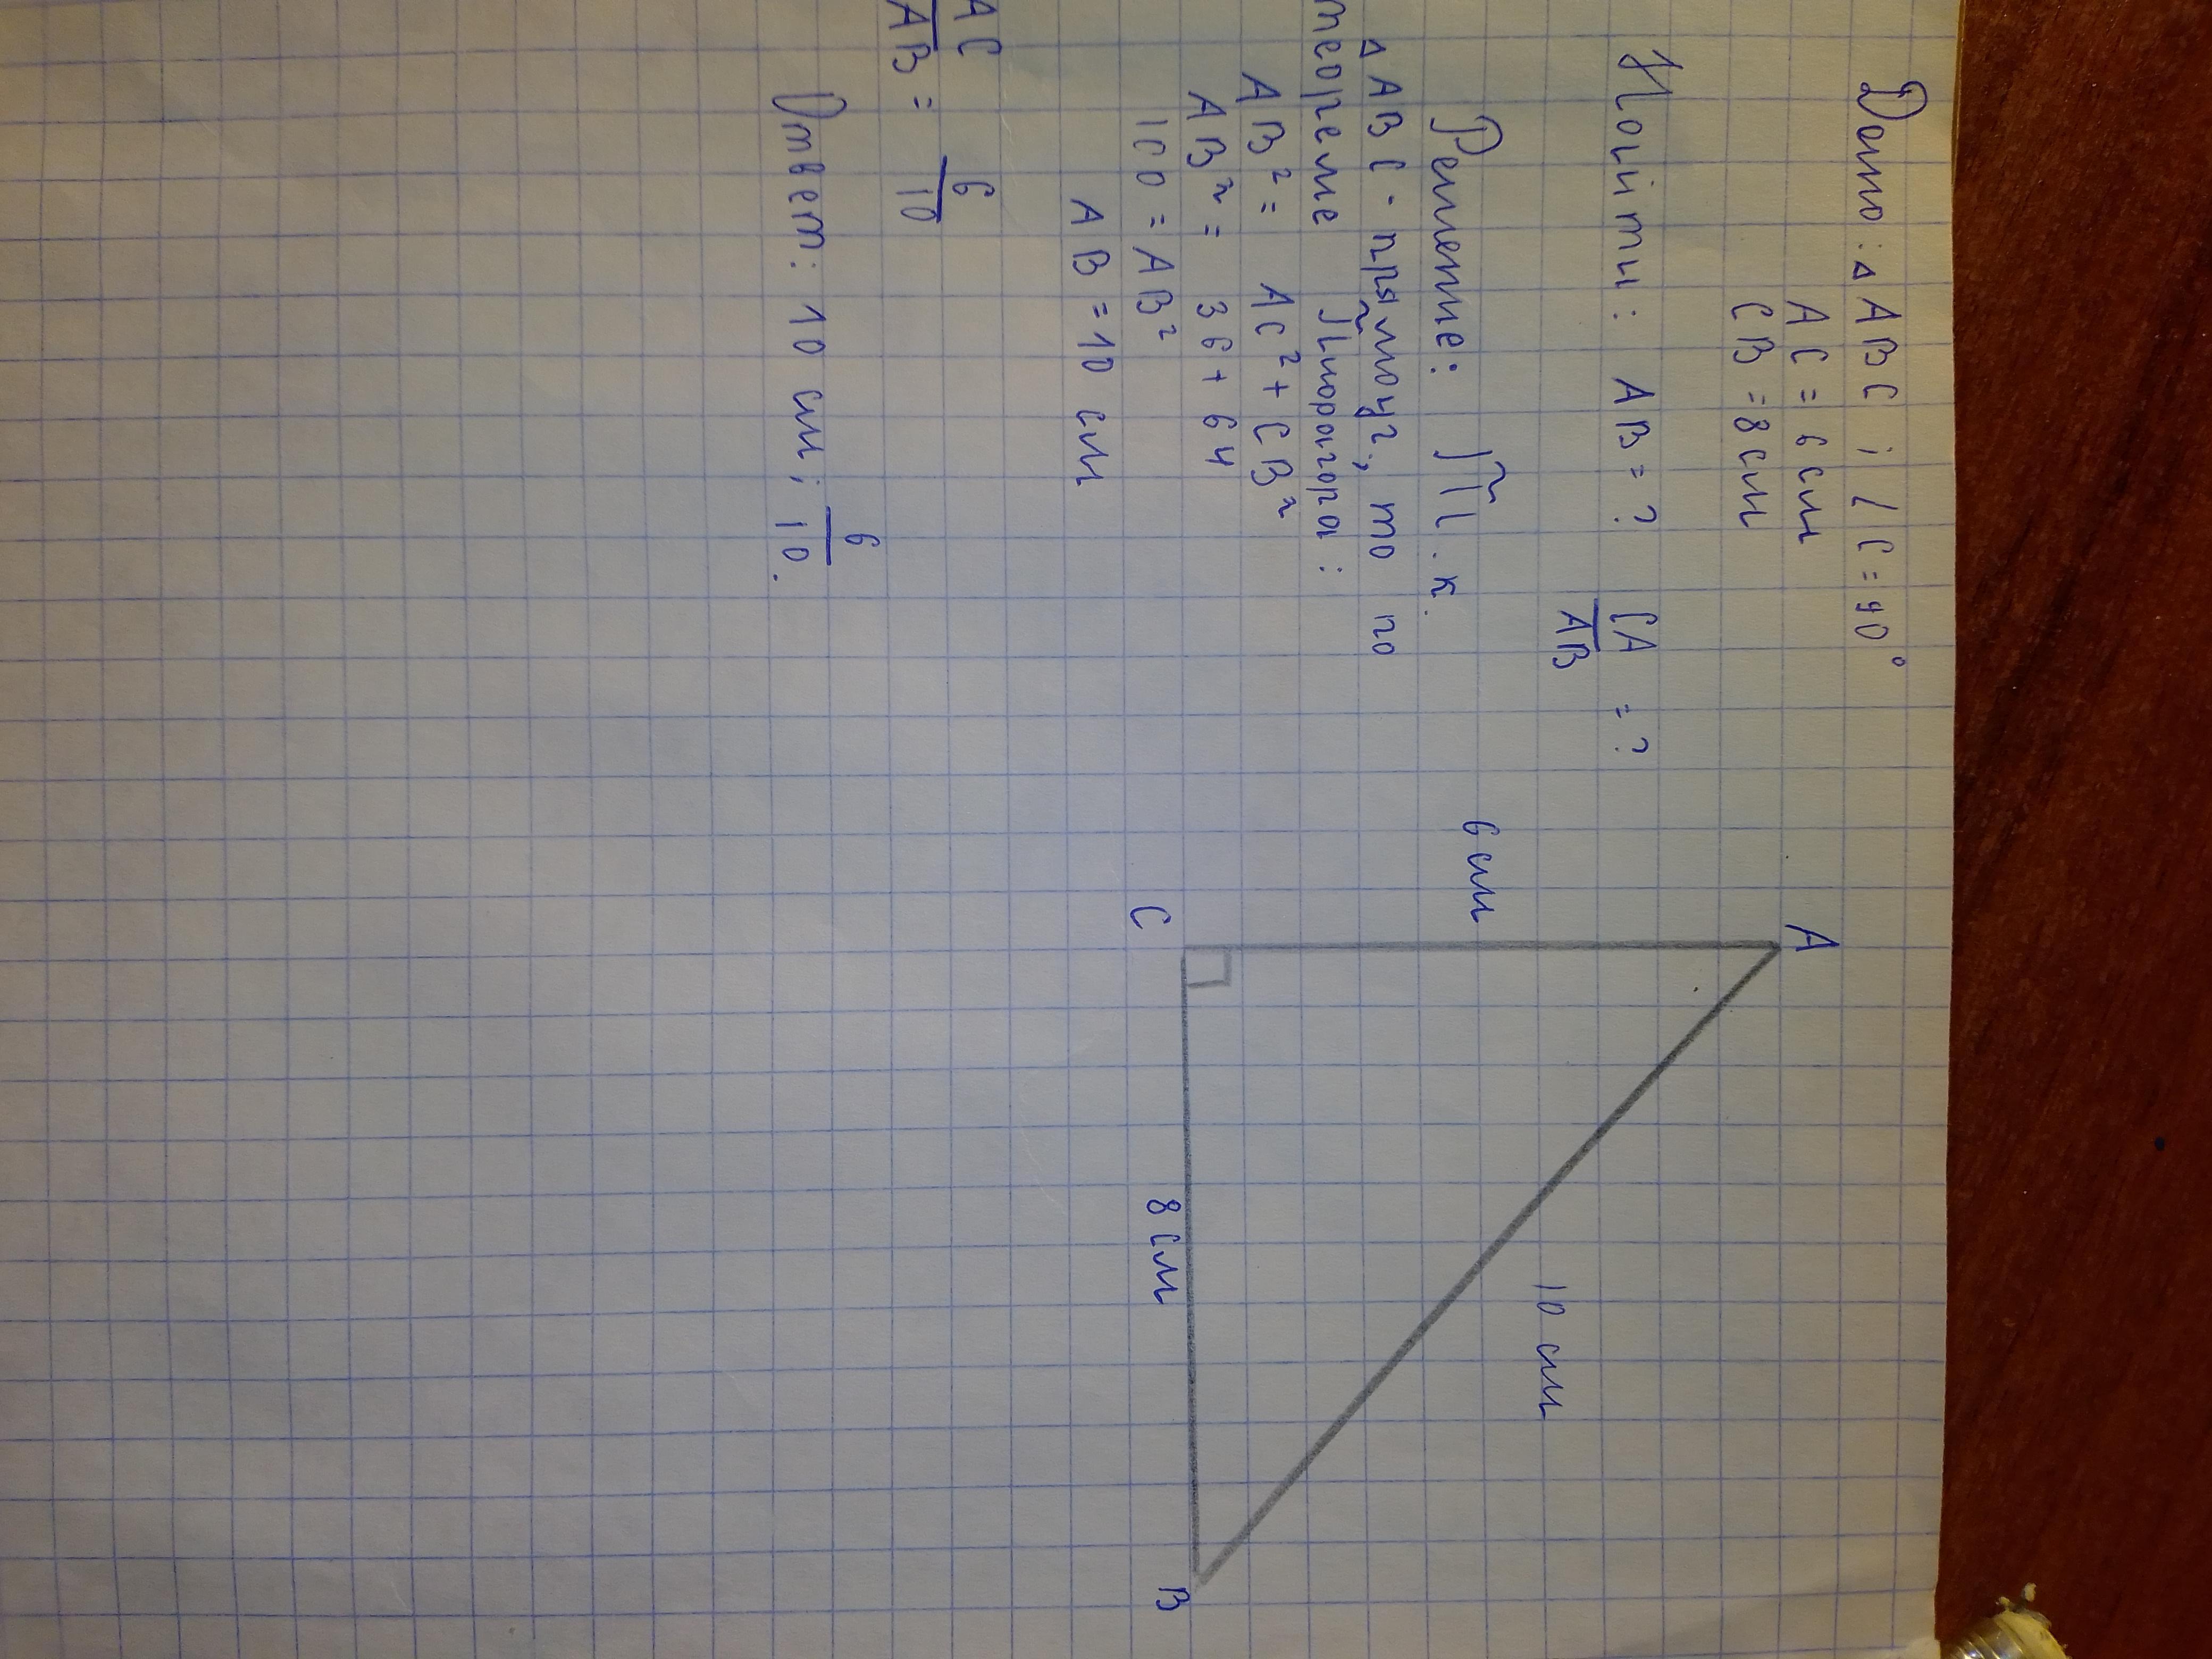 Дано: △ABC; ∠C=90°
AC = 6 см
CB = 8 см
Найти: AB = ? CA/AB = ?
Решение: Т.к.
△ABC - прямоуг., то по
теореме Пифагора:
AB² = AC² + CB²
AB² = 36 + 64
100 = AB²
AB = 10 см
AC/AB = 6/10
Ответ: 10 см; 6/10.
A
6 см
10 см
C
8 см
B